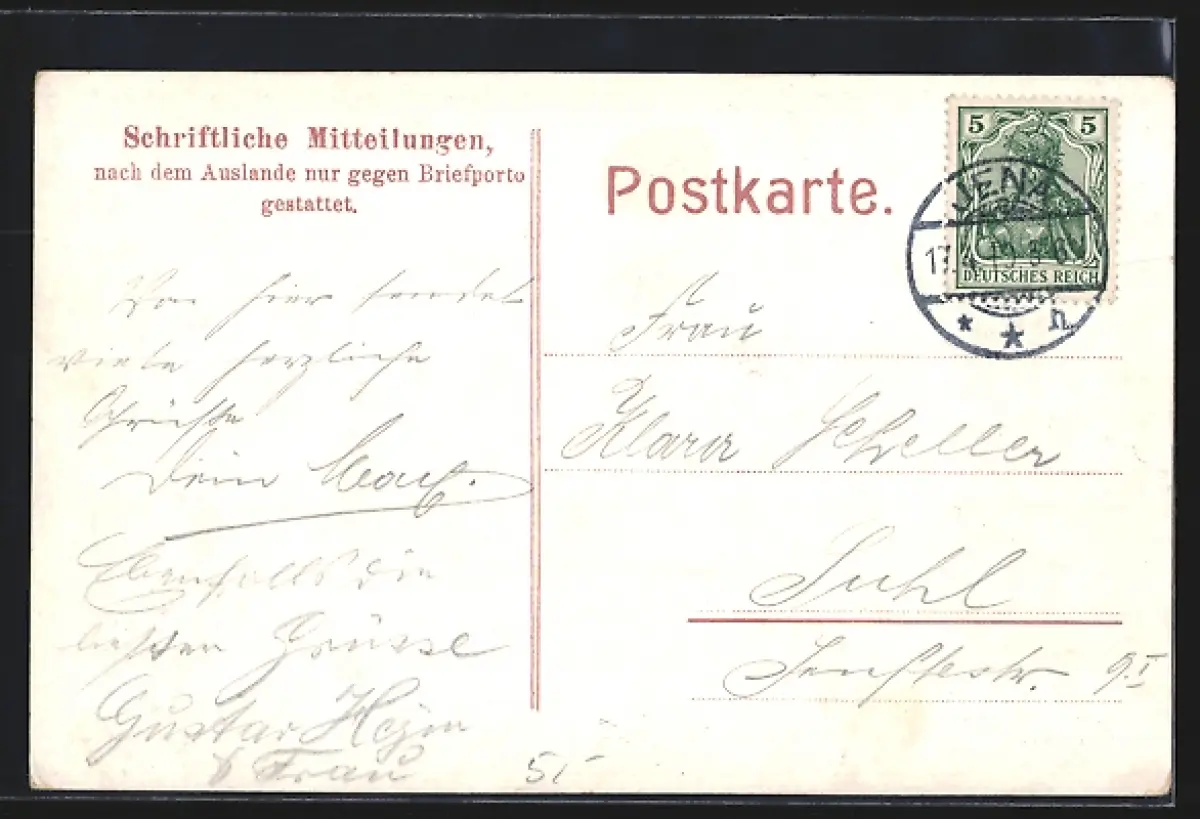 Schriftliche Mitteilungen,
nach dem Auslande nur gegen Briefporto
gestattet.
Von hier sendet
viele herzliche
Grüsse
Dein
Ebenfalls die
besten Grüsse
Gustav
& Frau
Postkarte.
5 5
DEUTSCHES REICH
JENA
17.
* * n
Frau
Klara Scheller
Suhl
9.I